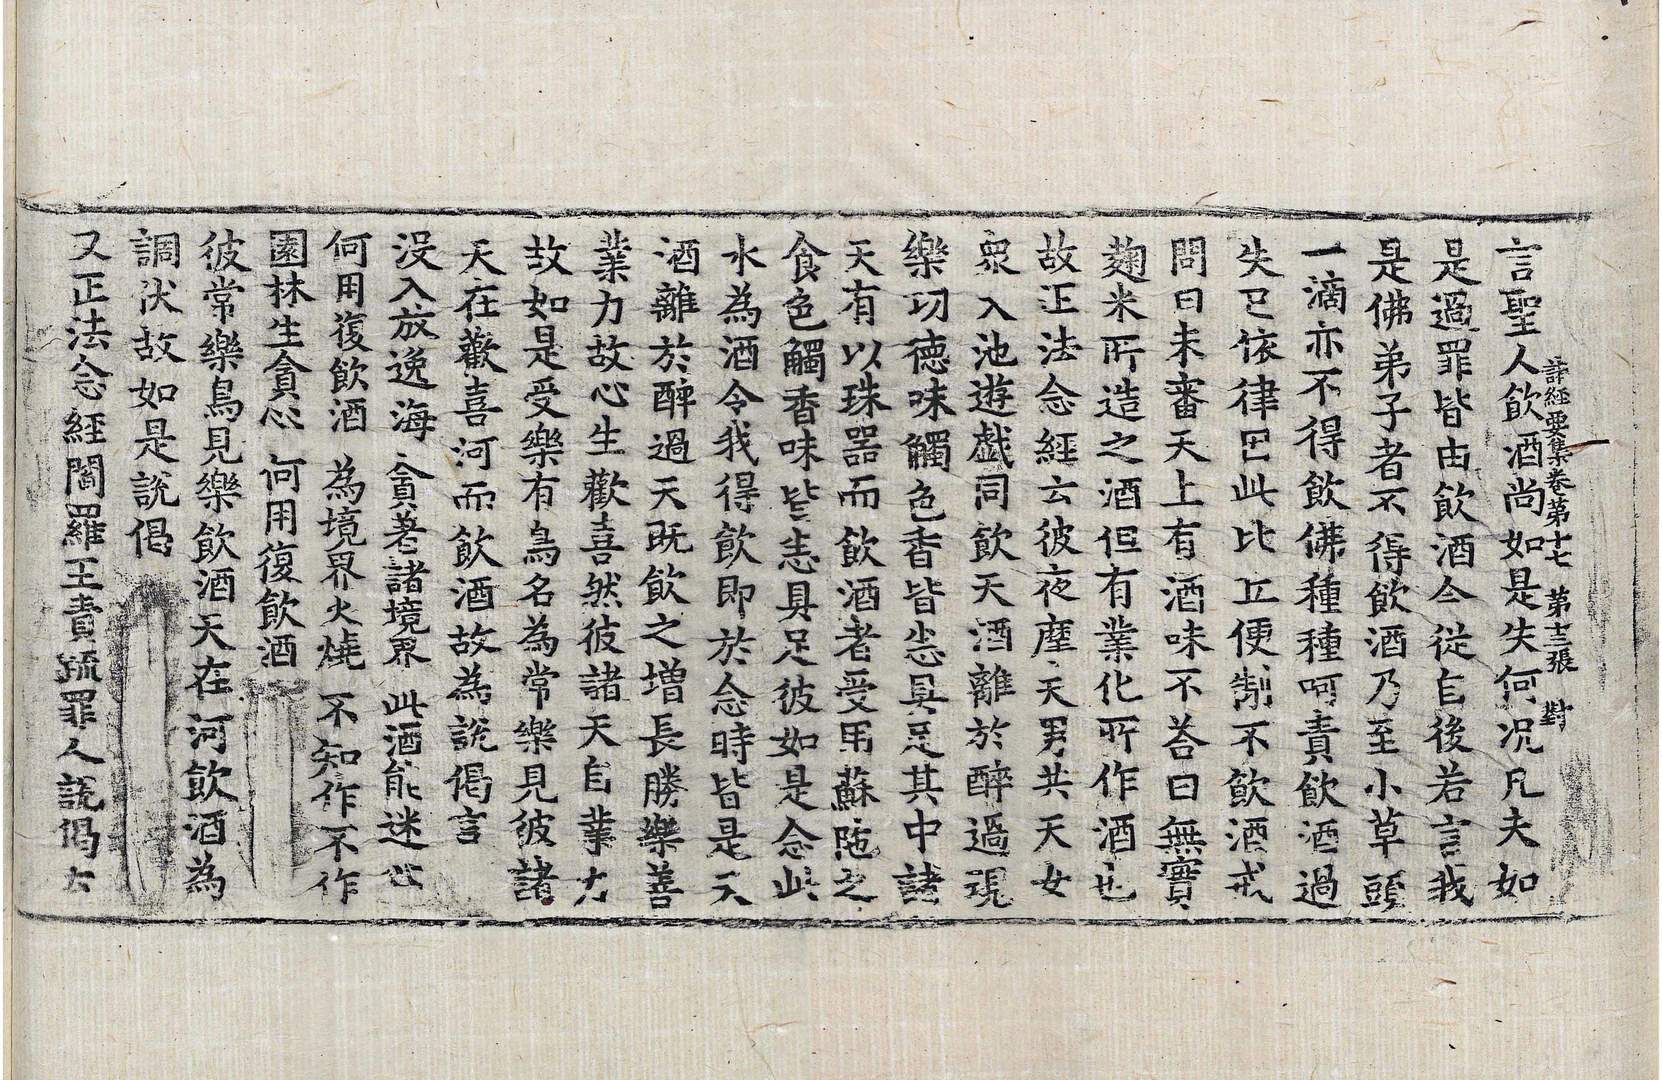 諸經要集卷第十七 第十三張 對
言聖人飲酒尚如是失何况凡夫如
是過罪皆由飲酒今從自後若言我
是佛弟子者不得飲酒乃至小草頭
一滴亦不得飲佛種種呵責飲酒過
失已依律因此比丘便制不飲酒戒
問曰未審天上有酒味不荅曰無實
麹米所造之酒但有業化所作酒也
故正法念經云彼夜摩天男共天女
衆入池遊戯同飲天酒離於醉過現
樂功德味觸色香皆悉具足其中諸
天有以珠器而飲酒者受用蘇陁之
食色觸香味皆悉具足彼如是念此
水為酒令我得飲即於念時皆是天
酒離於醉過天既飲之増長勝樂善
業力故心生歡喜然彼諸天自業力
故如是受樂有鳥名為常樂見彼諸
天在歡喜河而飲酒故為說偈言
没入放逸海 貪著諸境界 此酒能迷心
何用復飲酒 為境界火燒 不知作不作
園林生貪心 何用復飲酒
彼常樂鳥見樂飲酒天在河飲酒為
調伏故如是說偈
又正法念經閻羅王責䟽罪人說偈云